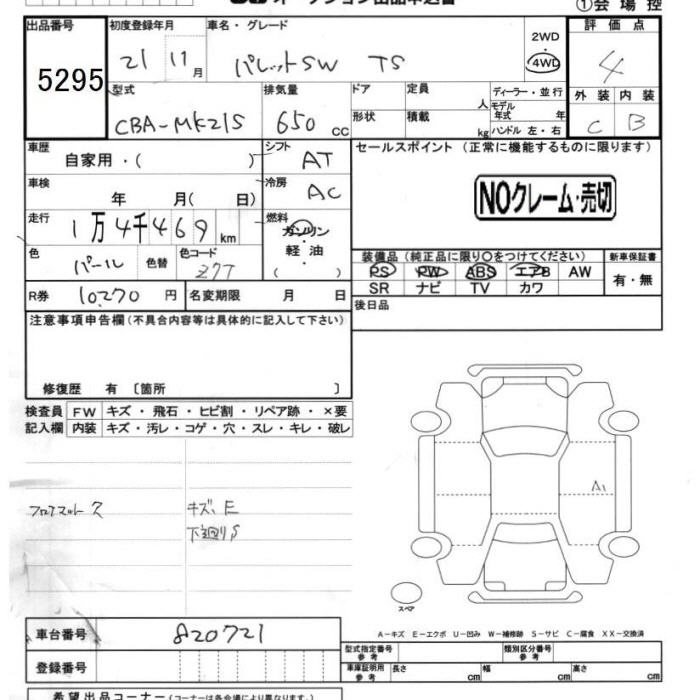 オークション出品申込書
①会場控
出品番号 初度登録年月 車名・グレード 評価点
5295 21 11月 パレットSW TS 2WD 4WD 4
型式 排気量 ドア 定員 人 ディーラー・並行 外装 内装
CBA-MK21S 650 cc 形状 積載 kg モデル年式 年 ハンドル 左・右 C B
車歴 シフト セールスポイント (正常に機能するものに限ります)
自家用・( ) AT
車検 冷房
年 月( 日) AC NOクレーム・売切
走行 燃料
1万4千469km ガソリン・軽油・( )
色 パール 色替 色コード Z7T
装備品(純正品に限り○をつけてください) 新車保証書
PS PW ABS エアB AW 有・無
SR ナビ TV カワ
R券 10,270円 名変期限 月 日
後日品
注意事項申告欄(不具合内容等は具体的に記入して下さい)
修復歴 有〔箇所 〕
検査員 FW キズ・飛石・ヒビ割・リペア跡・×要
記入欄 内装 キズ・汚レ・コゲ・穴・スレ・キレ・破レ
フロアマット欠 キズ、E
下廻りS
A1
スペア
A-キズ E-エクボ U-凹み W-補修跡 S-サビ C-腐食 XX-交換済
車台番号 820721
型式指定番号 類別区分番号
登録番号
車庫証明用参考 長さ cm 幅参考 cm 高さ参考 cm
希望出品コーナー(コーナーは各会場により異なります)